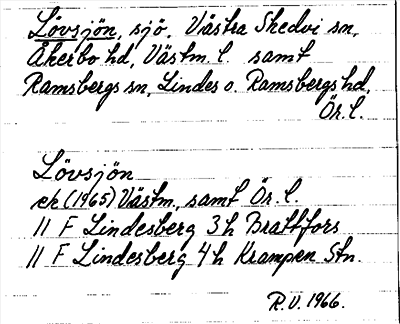 Lövsjön, sjö, Västra Skedvi sn,
Åkerbo hd, Västm. l. samt
Ramsbergs sn, Lindes o. Ramsbergs hd,
Ör. l.
Lövsjön
ek (1965) Västm., samt Ör. l.
11 F Lindesberg 3h Brattfors
11 F Lindesberg 4h Krampen Stn.
R.V. 1966.